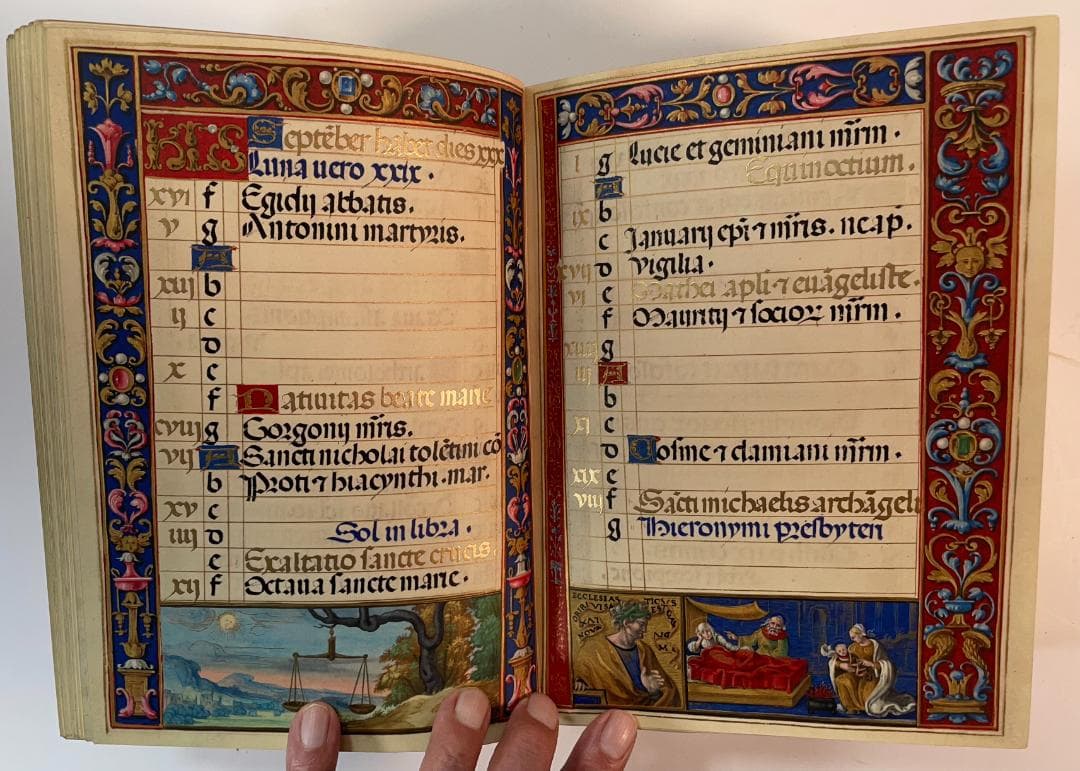 Septēber habet dies xxx
Luna uero xxix .
xvi f Egidij abbatis.
v g Antonini martyris.
A
xiij b
ij c
d
x e
f Natiuitas beate marie
xviij g Gorgonij mr̄is.
vij A Sancti nicholai tolētini cō
b Proti ⁊ hiacynthi . mar.
xv c
iiij d Sol in libra .
e Exaltatio sancte crucis.
xij f Octaua sancte marie .
i g Lucie et geminiani mr̄m .
A Equinoctium .
ix b
c Januarij epī ⁊ mr̄is . neap̄.
xvij d Vigilia .
vi e Mathei apli ⁊ euāgeliste .
f Mauritij ⁊ socioꝝ mr̄m .
xiiij g
iij A
b
xi c
d Cosme ⁊ damiani mr̄m .
xix e
viij f Sācti michaelis archāgeli
g Hieronymi presbyteri
ECCLESIAS TICVS